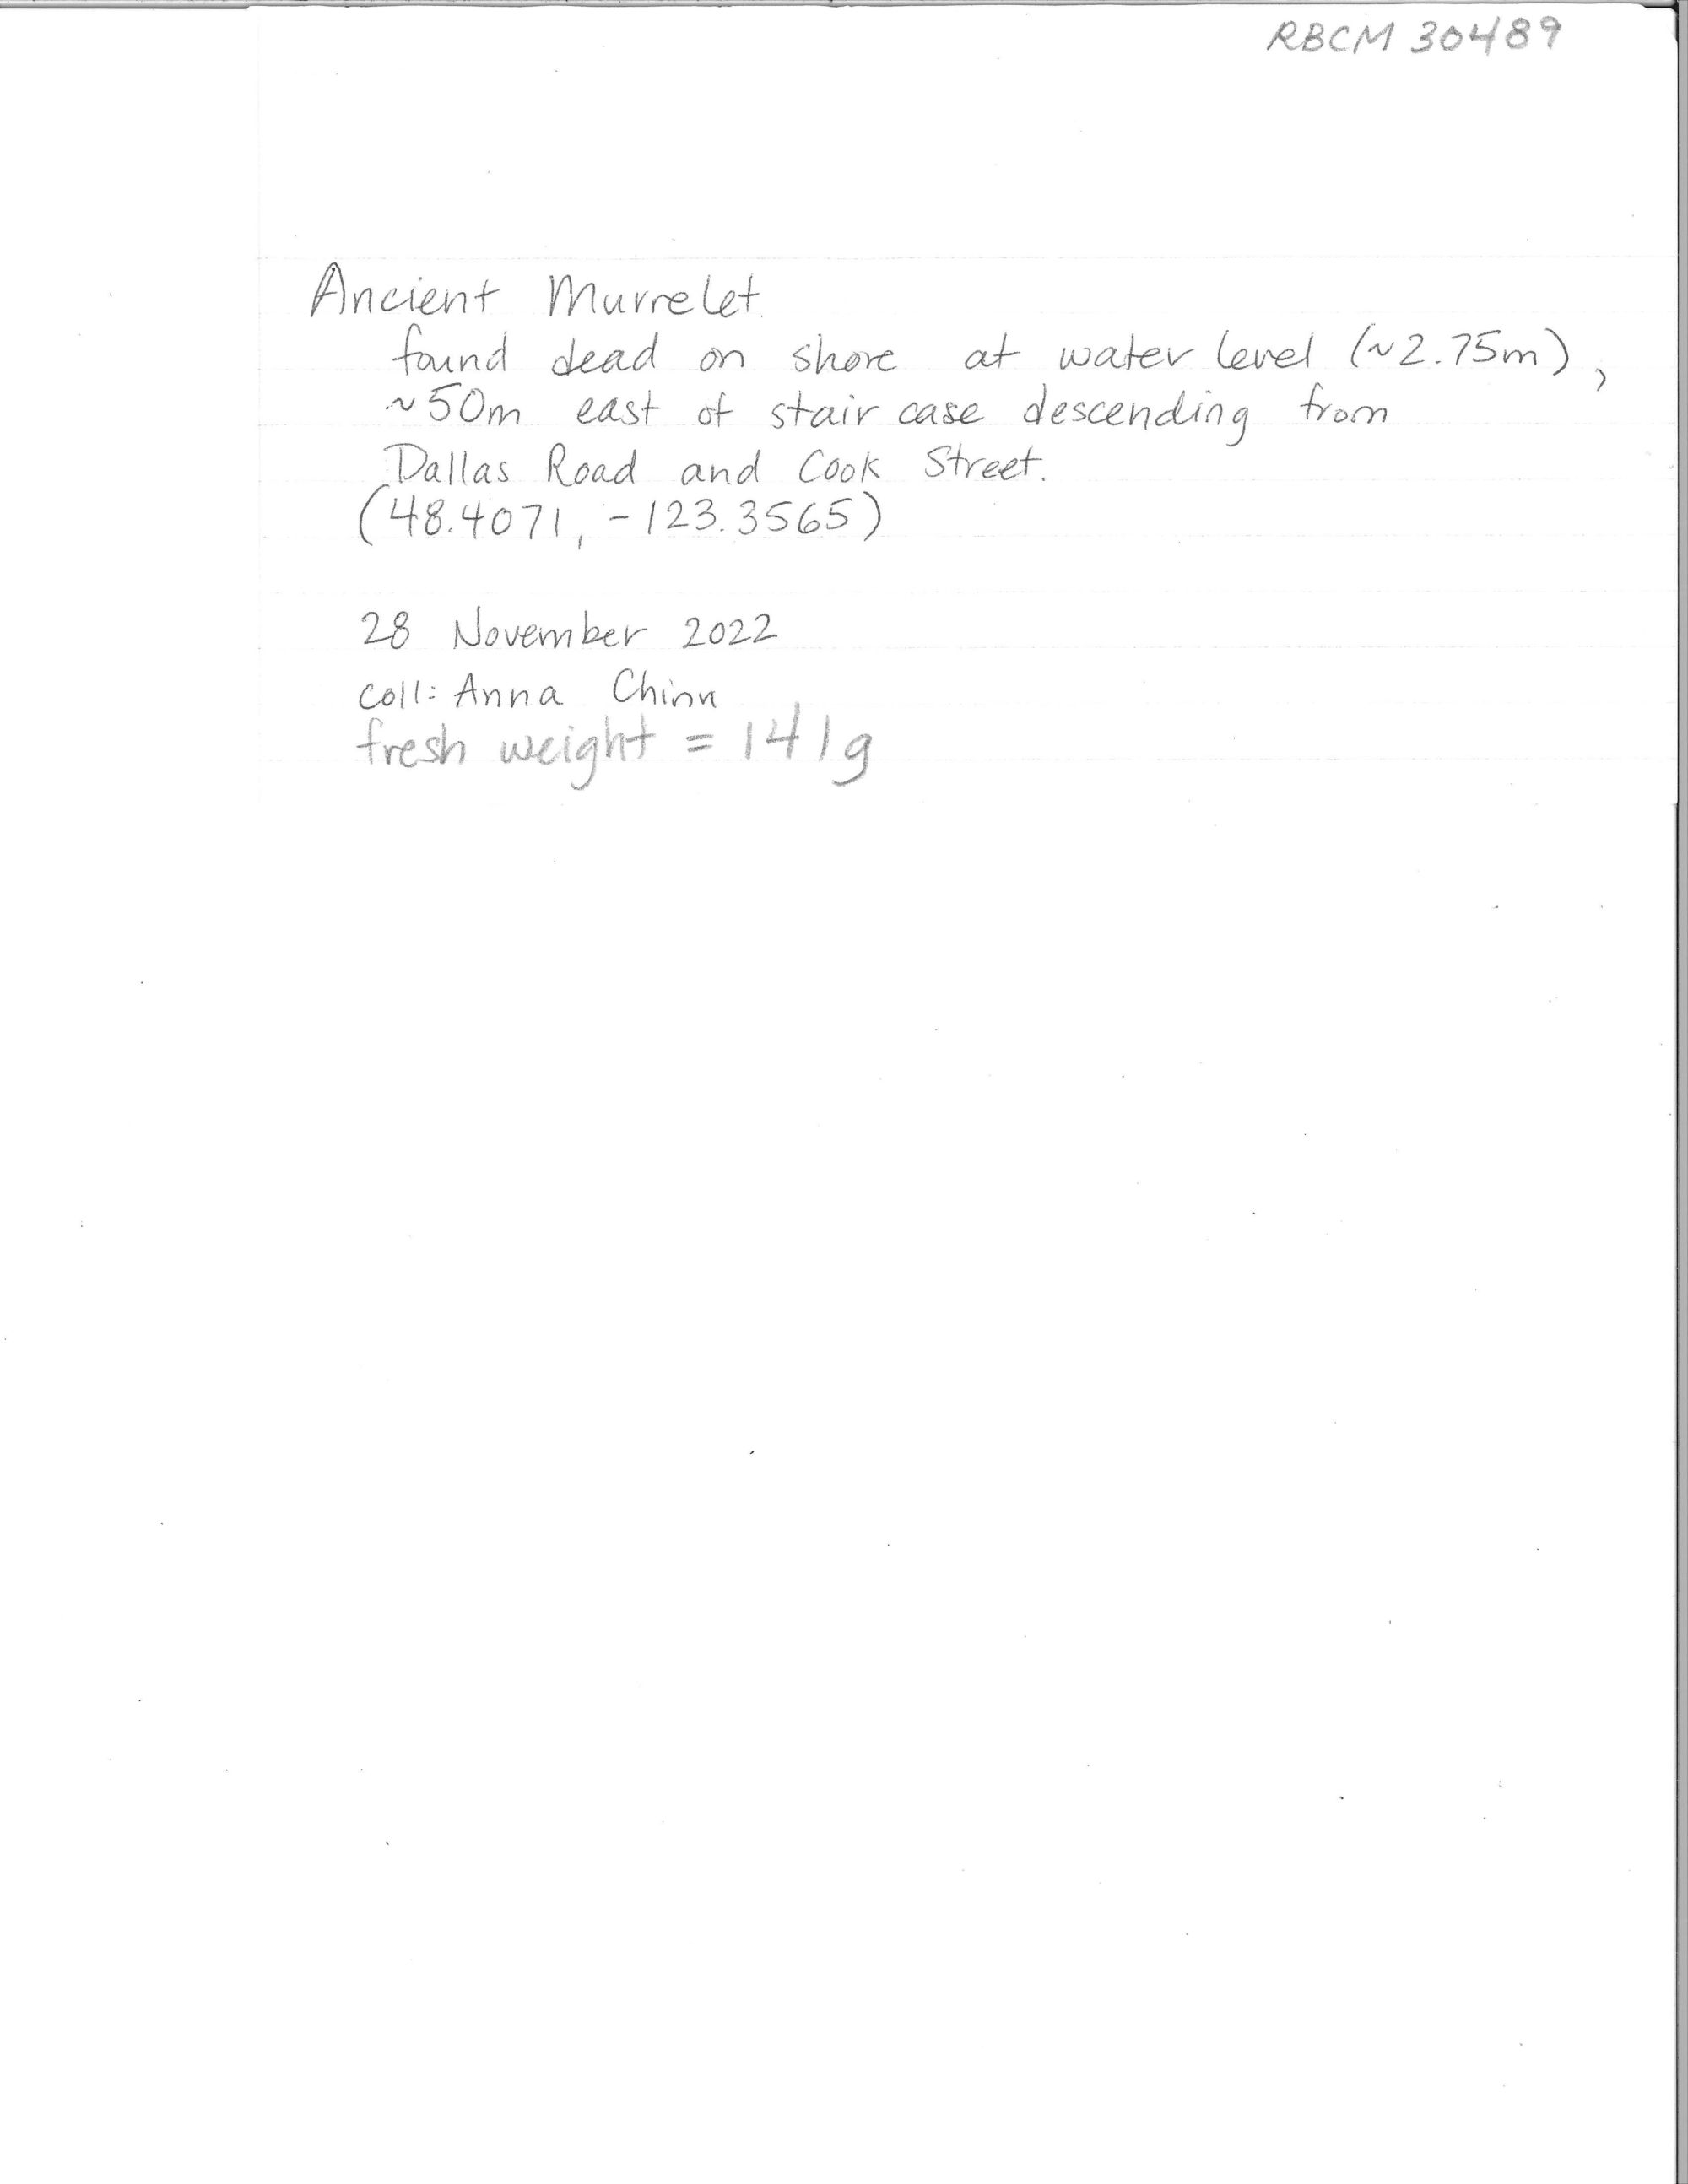 RBCM 30489
Ancient Murrelet
found dead on shore at water level (~2.75m),
~50m east of stair case descending from
Dallas Road and Cook Street.
(48.4071, -123.3565)
28 November 2022
coll: Anna Chinn
fresh weight = 141g